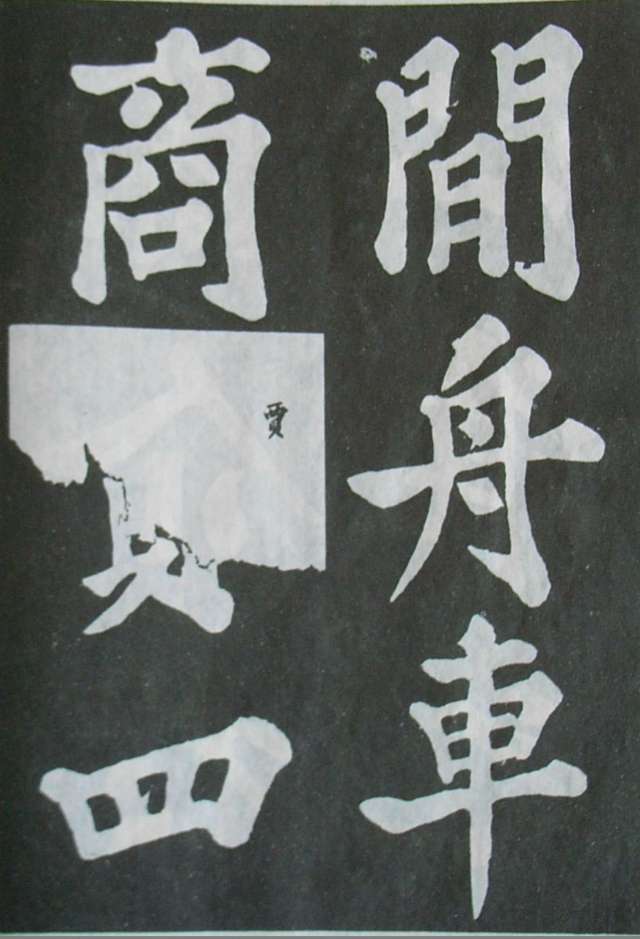 間舟車
商賈四